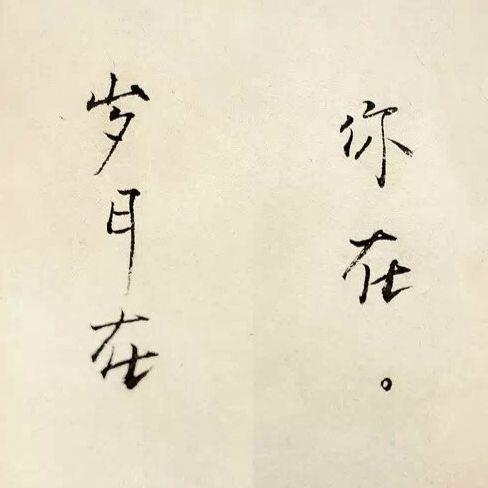 岁月在
你在。